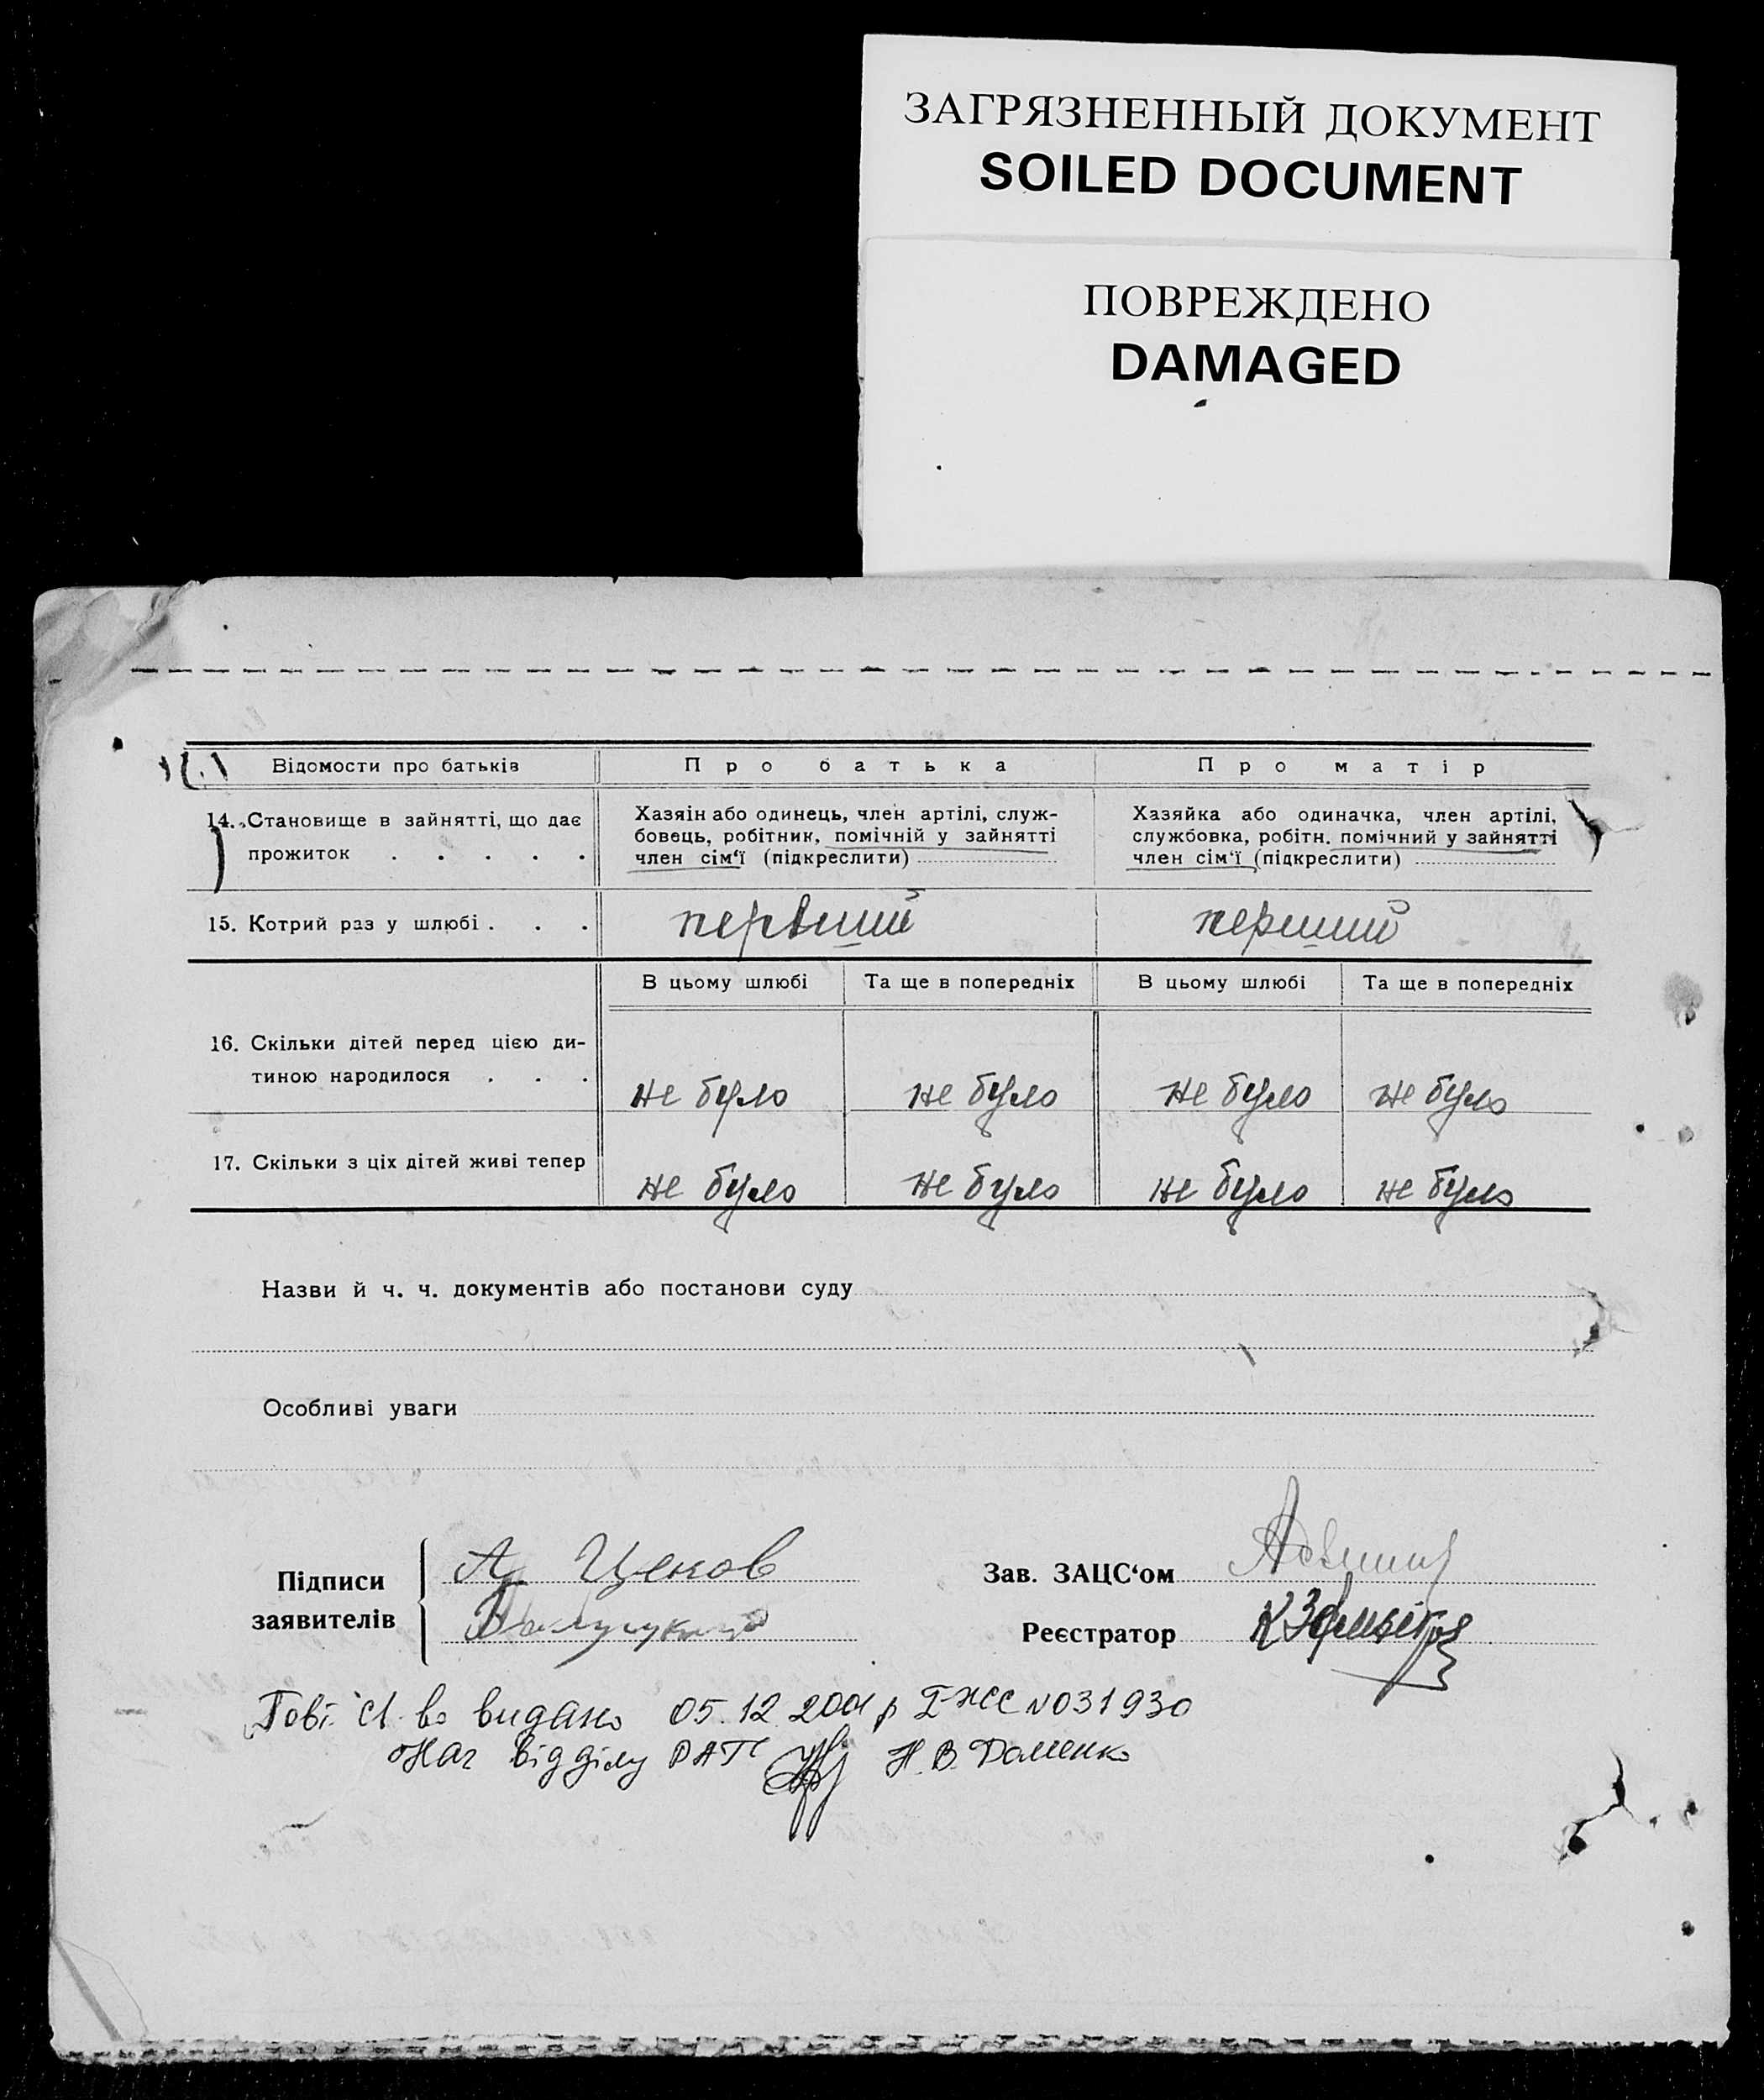 ЗАГРЯЗНЕННЫЙ ДОКУМЕНТ
SOILED DOCUMENT
ПОВРЕЖДЕНО
DAMAGED
Відомости про батьків Про батька Про матір
14. Становище в зайнятті, що дає прожиток . . . . .
Хазяін або одинець, член артілі, служ-
бовець, робітник, помічній у зайнятті
член сім‘ї (підкреслити)
Хазяйка або одиначка, член артілі,
службовка, робітн. помічний у зайнятті
член сім‘ї (підкреслити)
15. Котрий раз у шлюбі . . . первший перший
В цьому шлюбі Та ще в попередніх В цьому шлюбі Та ще в попередніх
16. Скільки дітей перед цією ди-
тиною народилося . . . не було не було не було не було
17. Скільки з ціх дітей живі тепер не було не було не було не було
Назви й ч. ч. документів або постанови суду
Особливі уваги
Підписи
заявителів
А Ценов
Зав. ЗАЦС‘ом
Реєстратор
Повт. св во видано 05.12.2001 р I-ЖС №031930
Нач відділу РАГС Н.В. Доменко